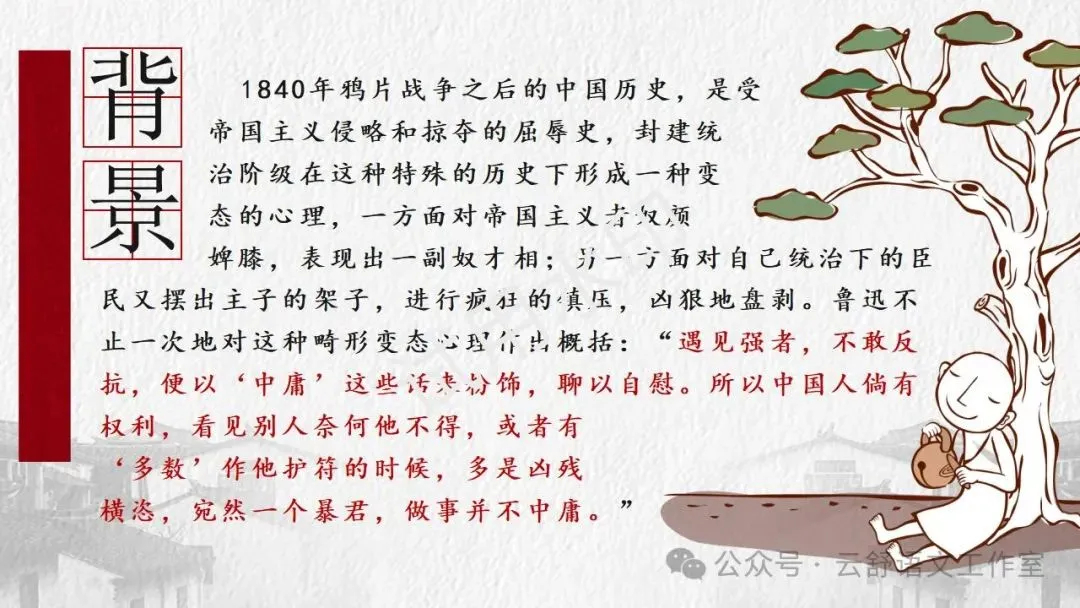 背景
1840年鸦片战争之后的中国历史，是受
帝国主义侵略和掠夺的屈辱史，封建统
治阶级在这种特殊的历史下形成一种变
态的心理，一方面对帝国主义者奴颜
婢膝，表现出一副奴才相；另一方面对自己统治下的臣
民又摆出主子的架子，进行疯狂的镇压，凶狠地盘剥。鲁迅不
止一次地对这种畸形变态心理作出概括：“遇见强者，不敢反
抗，便以‘中庸’这些话来粉饰，聊以自慰。所以中国人倘有
权利，看见别人奈何他不得，或者有
‘多数’作他护符的时候，多是凶残
横恣，宛然一个暴君，做事并不中庸。”
公众号·云舒语文工作室